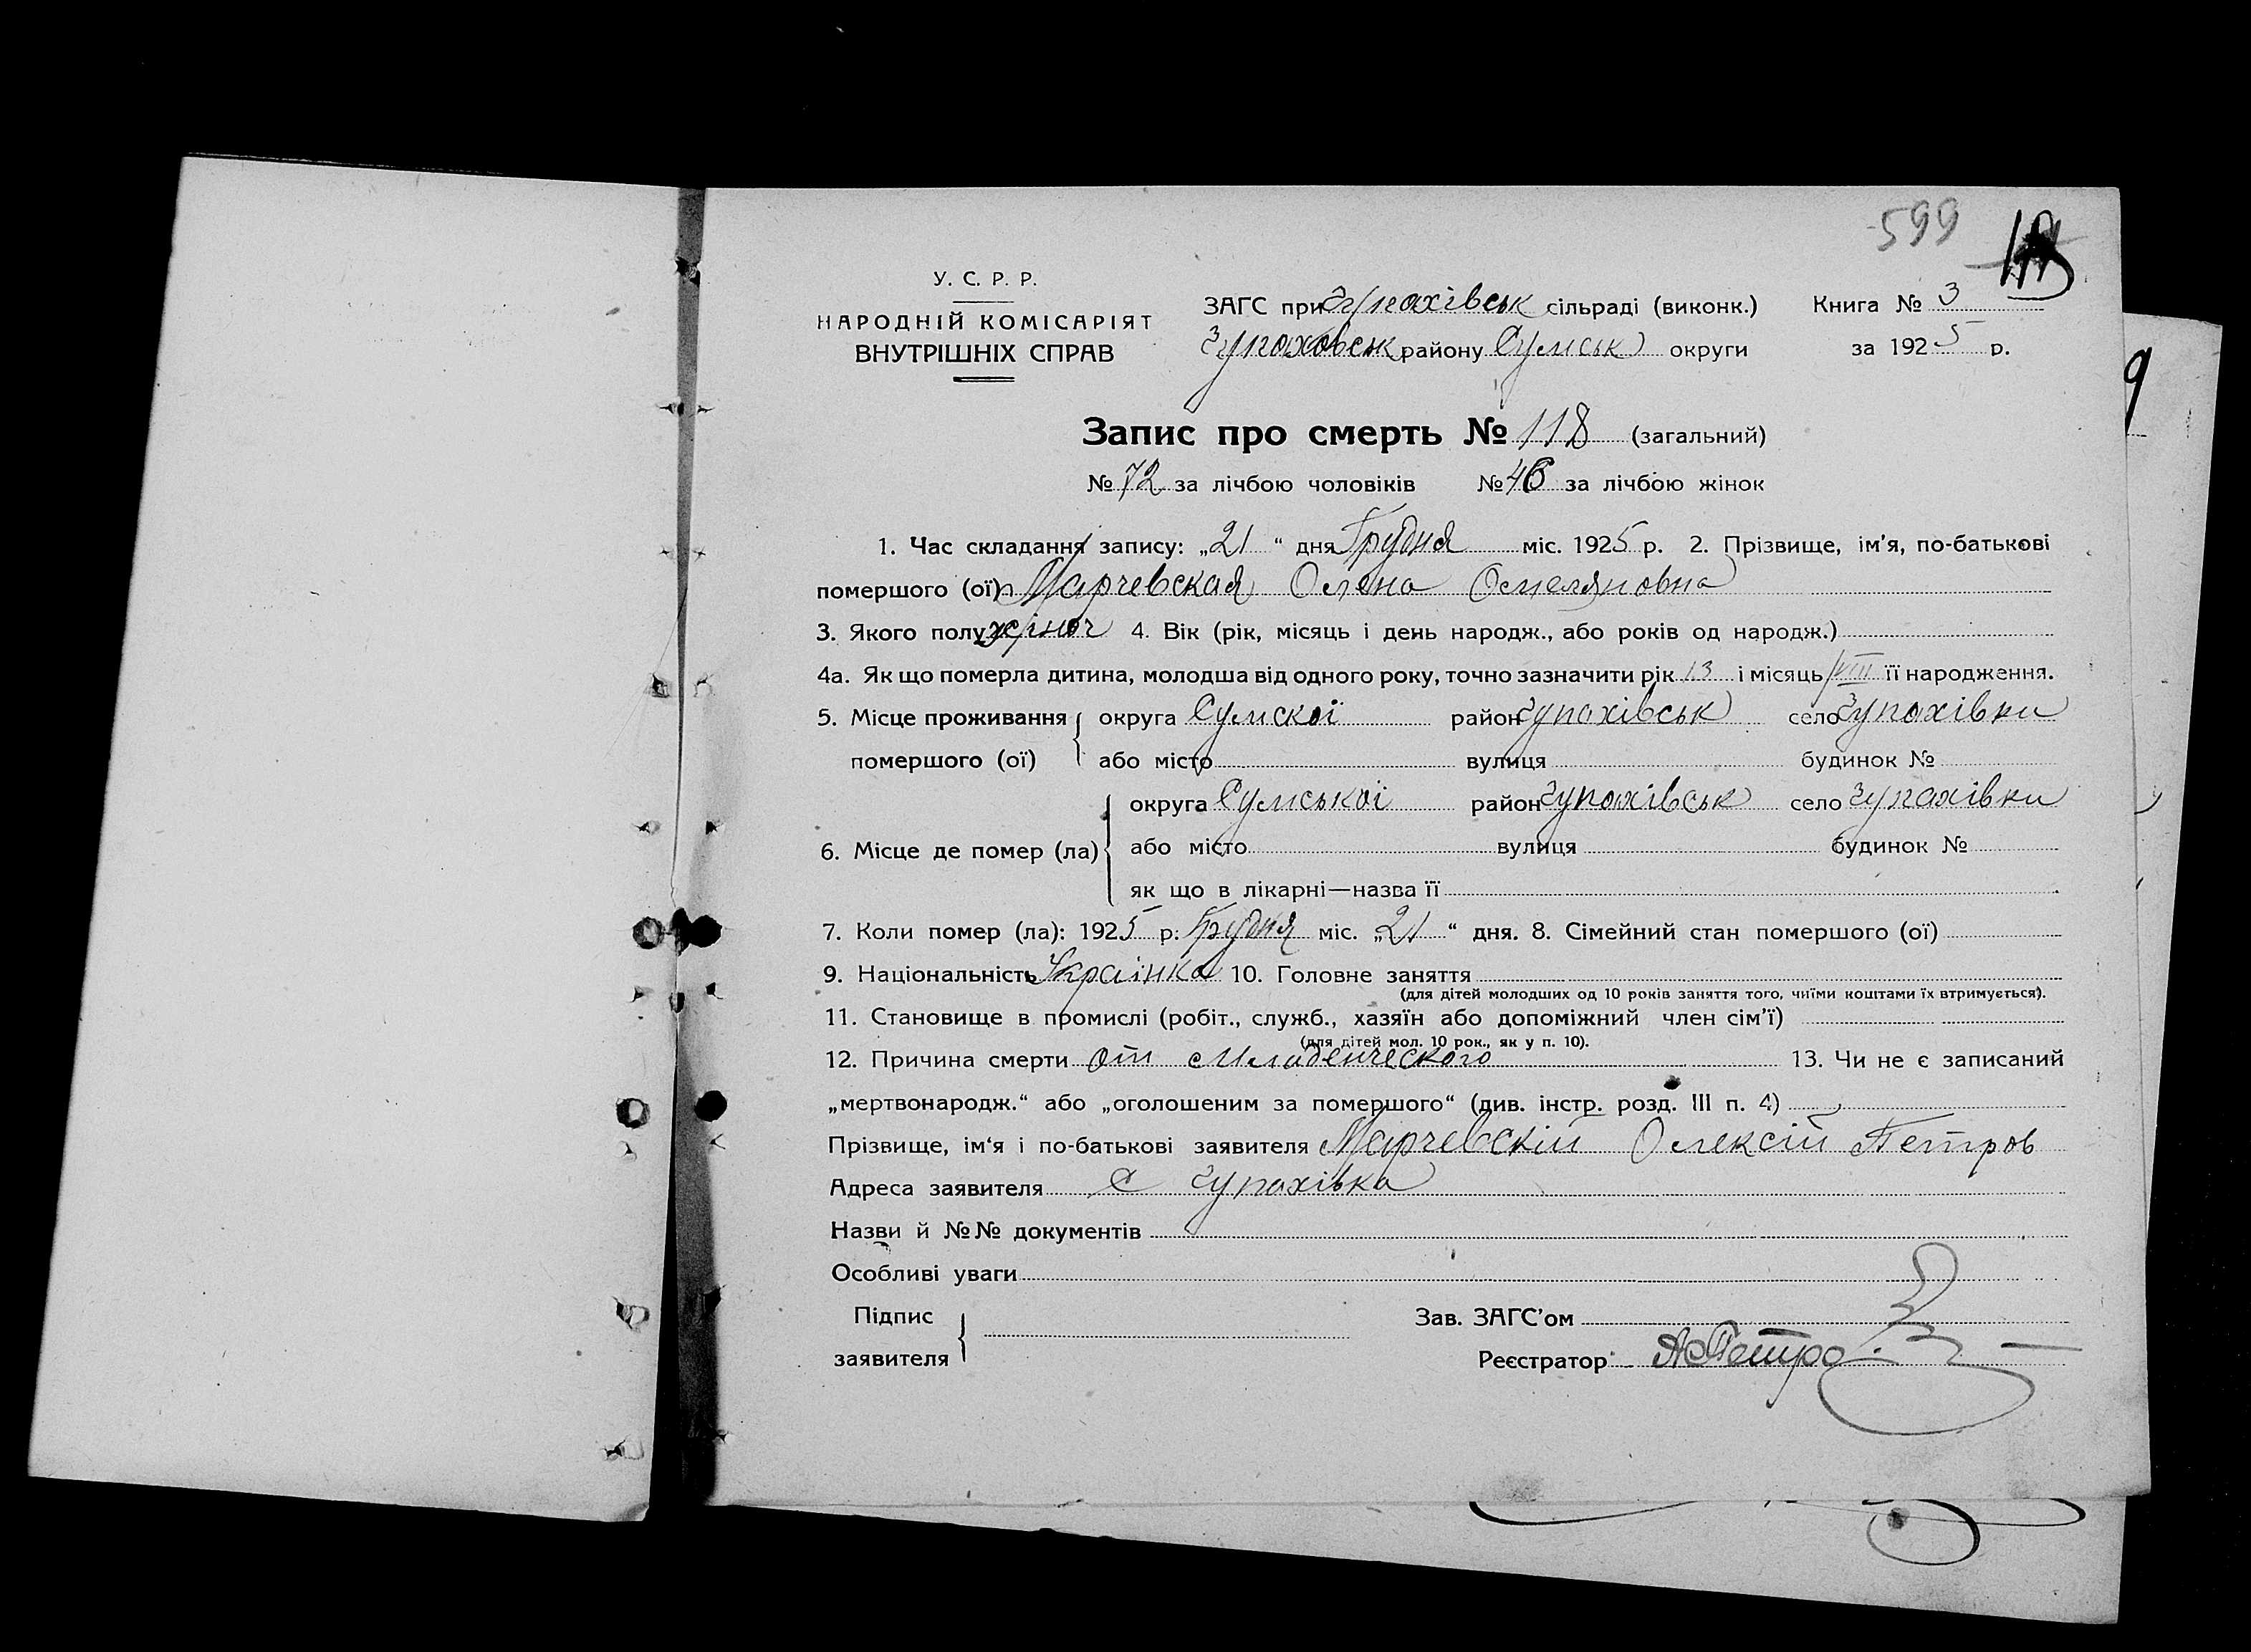 599
У. С. Р. Р.
НАРОДНІЙ КОМІСАРІЯТ
ВНУТРІШНІХ СПРАВ
ЗАГС при Чупахівськ сільраді (виконк.) Книга № 3
Чупаховськ району Сумськ округи за 1925 р.
Запис про смерть № 118 (загальний)
№ 72 за лічбою чоловіків № 46 за лічбою жінок
1. Час складання запису: „21“ дня Грудня міс. 1925 р. 2. Прізвище, ім'я, по-батькові
помершого (ої) Марчевская Олена Омеляновна
3. Якого полу 4. Вік (рік, місяць і день народж., або років од народж.)
4а. Як що померла дитина, молодша від одного року, точно зазначити рік 13 і місяць VIII її народження.
5. Місце проживання округа Сумскої район Чупахівськ село Чупахівки
помершого (ої) або місто вулиця будинок №
округа Сумської район Чупахівськ село Чупахівки
6. Місце де помер (ла) або місто вулиця будинок №
як що в лікарні—назва її
7. Коли помер (ла): 1925 р. Грудня міс. „21“ дня. 8. Сімейний стан помершого (ої)
9. Національність Українка 10. Головне заняття
(для дітей молодших од 10 років заняття того, чиїми коштами їх втримується).
11. Становище в промислі (робіт., служб., хазяїн або допоміжний член сім'ї)
(для дітей мол. 10 рок., як у п. 10).
12. Причина смерти от Младенческого 13. Чи не є записаний
„мертвонародж.“ або „оголошеним за помершого“ (див. інстр. розд. III п. 4)
Прізвище, ім'я і по-батькові заявителя Марчевскій Олексій Петров
Адреса заявителя С Чупахівка
Назви й №№ документів
Особливі уваги
Підпис Зав. ЗАГС'ом
заявителя Реєстратор